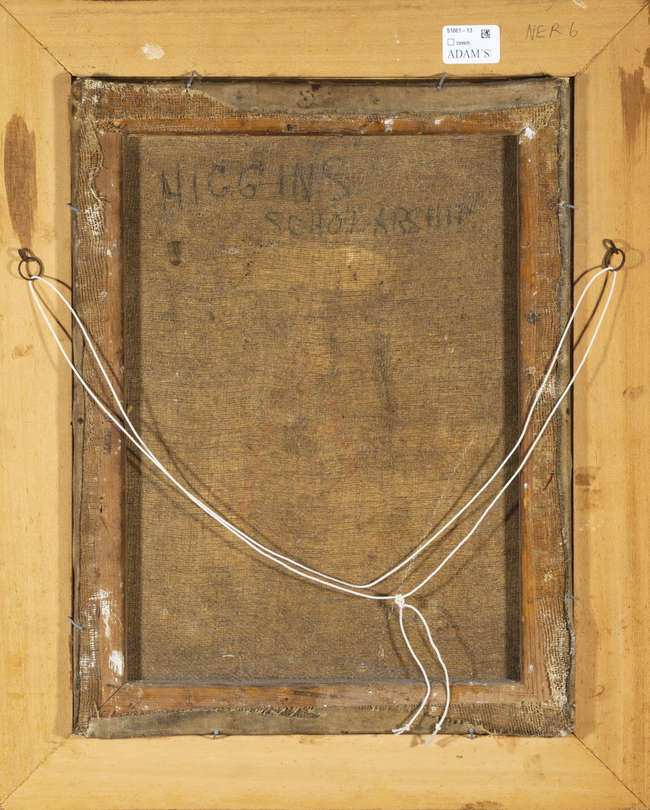 51661 - 13
ADAM'S
NER 6
HIGGINS
SCHOLARSHIP